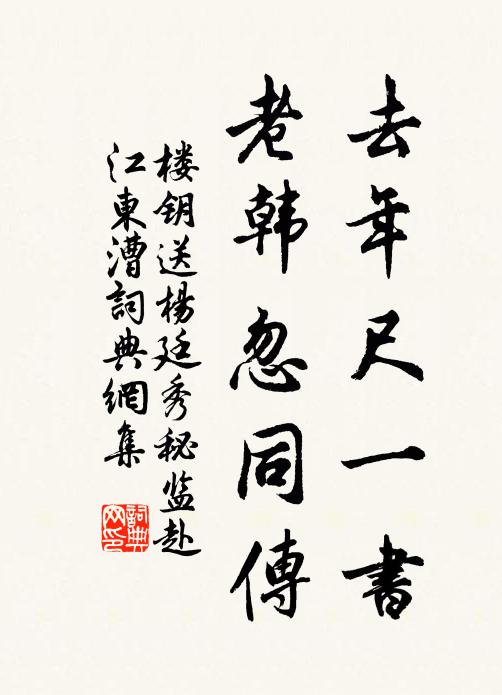 去年尺一书
老韩忽同傳
楼钥送楊廷秀秘监赴
江東漕詞典網集
詞典网印